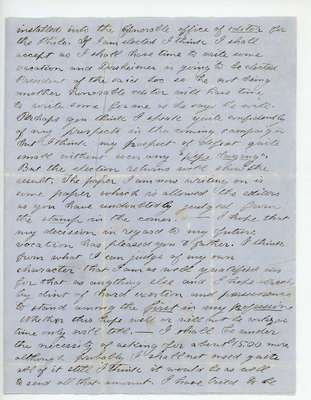 installed into the honorable office of editor for
the Philo. If I am elected I think I shall
accept as I shall have time to write some
vacation and is going to be elected
President of the so he not being
another honorable editor will have time
to write some for me as he says he will.
Perhaps you think I speak quite confidently
of my prospects in the coming campaign
but I think my prospect of defeat quite
small without even any "pipe laying".
But the election returns will show the
result. The paper I am now writing on is
some paper which is allowed the editors
as you have undoubtedly judged from
the stamp in the corner. — I hope that
my decision in regard to my future
vocation has pleased you & father. I think
from what I can judge of my own
character that I am as well qualified
for that as anything else and I hope
by dint of hard exertion and perseverance
to stand among the first in my profession
Whether this hope will or will not be
time only will tell. — I shall be under
the necessity of asking for about $15.00 more
although probably I shall not need quite
all of it still I think it would be as well
to send all that amount. I have tried to be